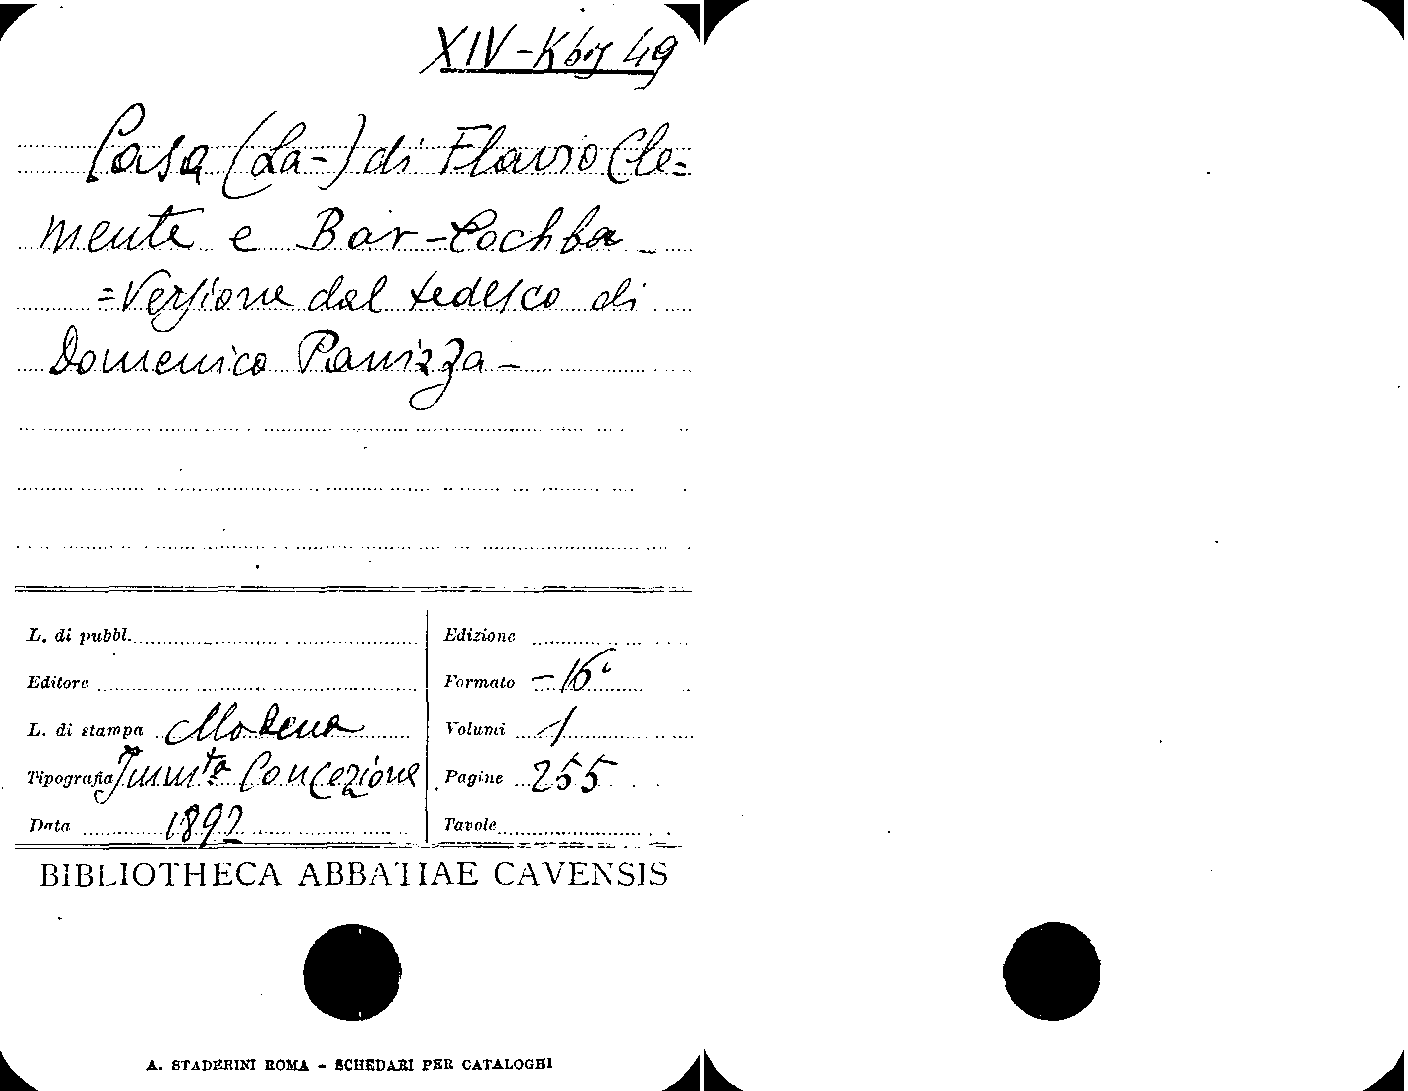 XIV-K bis 49
Casa (La-) di Flavio Cle=
mente e Bar-Cochba -
=Versione dal tedesco di
Domenico Panizza -
L. di pubbl.
Edizione
Editore
Formato -16°
L. di stampa Modena
Volumi 1
Tipografia Imm.ta Concezione
Pagine 255
Data 1892
Tavole
BIBLIOTHECA ABBATIAE CAVENSIS
A. STADERINI ROMA - SCHEDARI PER CATALOGHI